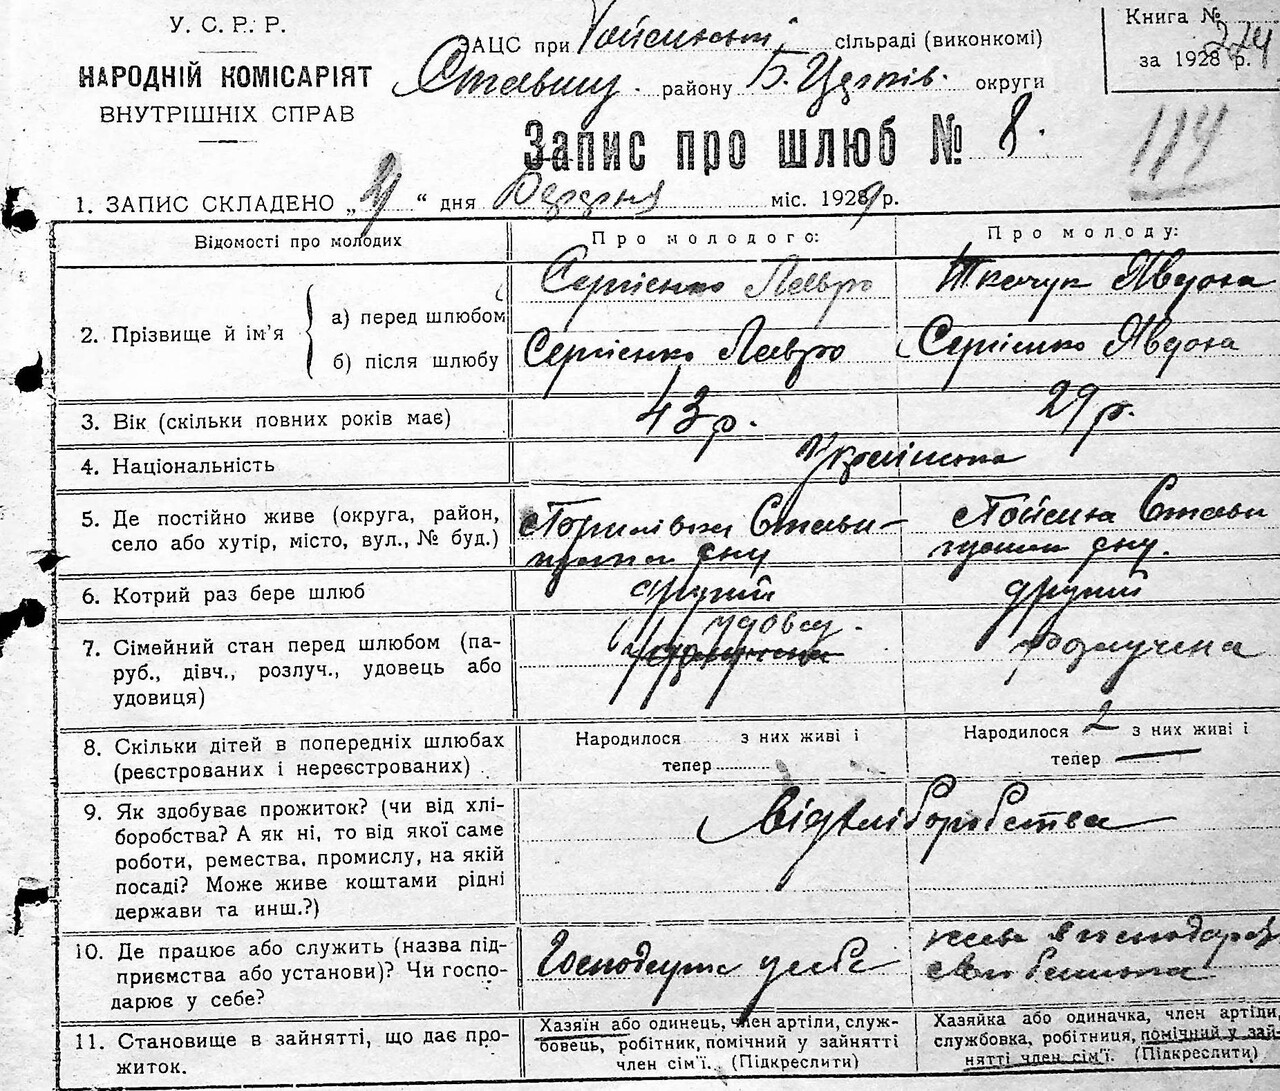 У. С. Р. Р.
НАРОДНІЙ КОМІСАРІЯТ
ВНУТРІШНІХ СПРАВ
ЗАЦС при сільраді (виконкомі)
району Б. Церків. округи
Книга №
за 1928 р.
224
114
Запис про шлюб № 8.
1. ЗАПИС СКЛАДЕНО „ “ дня міс. 1929 р.
Відомості про молодих
Про молодого:
Про молоду:
2. Прізвище й ім'я
а) перед шлюбом
Сергієнко Лавро
Ткачук Явдоха
б) після шлюбу
Сергієнко Лавро
Сергієнко Явдоха
3. Вік (скільки повних років має)
43 р.
29 р.
4. Національність
Українська
5. Де постійно живе (округа, район,
село або хутір, місто, вул., № буд.)
Стави-
Стави
6. Котрий раз бере шлюб
другий
другий
7. Сімейний стан перед шлюбом (па-
руб., дівч., розлуч., удовець або
удовиця)
удовец.
розлучена
8. Скільки дітей в попередніх шлюбах
(реєстрованих і нереєстрованих)
Народилося з них живі і
тепер
Народилося 2 з них живі і
тепер —
9. Як здобуває прожиток? (чи від хлі-
боробства? А як ні, то від якої саме
роботи, ремества, промислу, на якій
посаді? Може живе коштами рідні
держави та инш.?)
Від хліборобства
10. Де працює або служить (назва під-
приємства або установи)? Чи госпо-
дарює у себе?
Господарює у себе
в господарстві
11. Становище в зайнятті, що дає про-
житок.
Хазяїн або одинець, член артіли, служ-
бовець, робітник, помічний у зайнятті
член сім'ї. (Підкреслити)
Хазяйка або одиначка, член артіли,
службовка, робітниця, помічний у зай-
нятті член сім'ї. (Підкреслити)